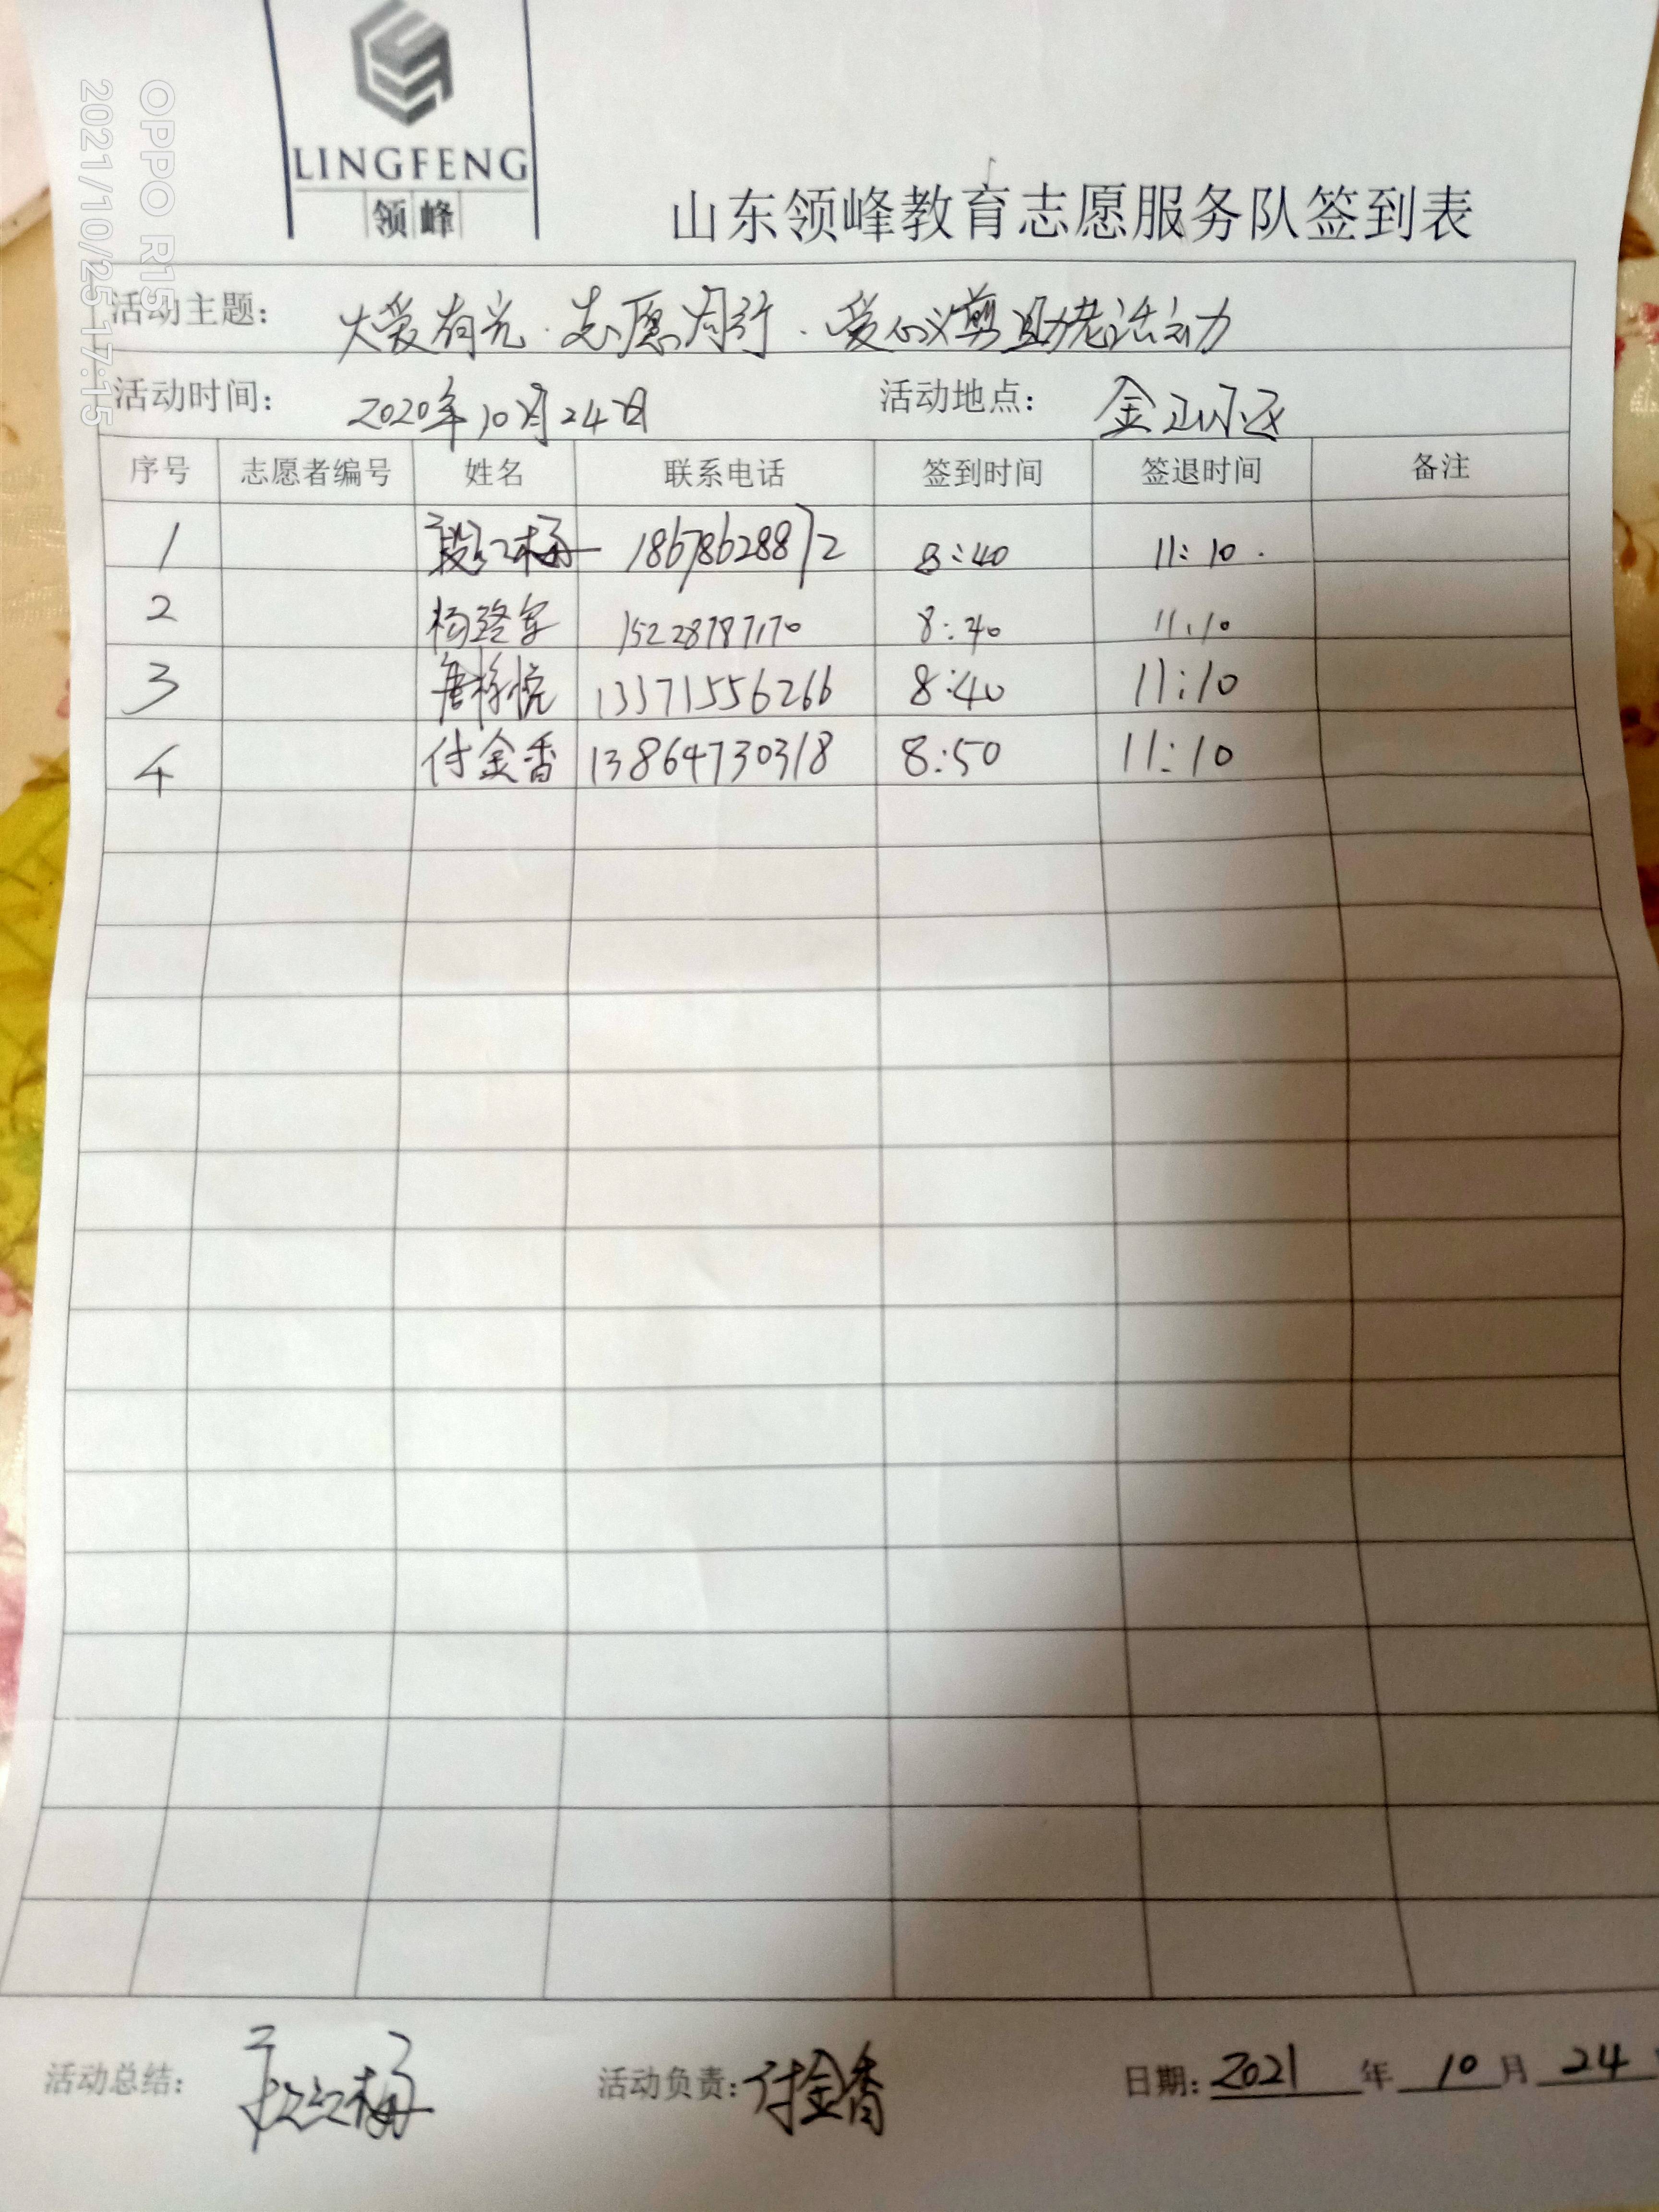 LINGFENG
领峰
山东领峰教育志愿服务队签到表
OPPO R15
2021/10/25 17:15
活动主题: 大爱有光·志愿同行·爱心义剪助老活动
活动时间: 2020年10月24日 活动地点: 金山小区
序号 志愿者编号 姓名 联系电话 签到时间 签退时间 备注
1 段红梅 18678628872 8:40 11:10
2 杨 15228787170 8:40 11:10
3 唐梓悦 13371556266 8:40 11:10
4 付金香 13864730318 8:50 11:10
活动总结: 段红梅 活动负责: 付金香 日期: 2021 年 10 月 24